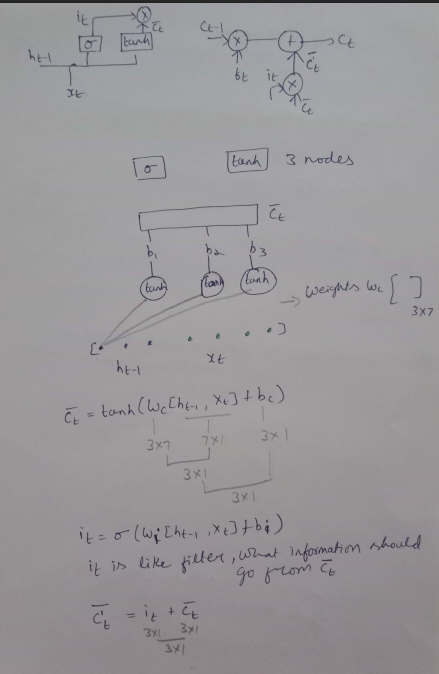 i_t
⊗
σ
tanh
C̅_t
h_t-1
x_t
C_t-1
×
+
C_t
b_t
i_t
C̅_t'
×
C̅_t
σ
tanh
3 nodes
C̅_t
b₁
b₂
b₃
tanh
tanh
tanh
→ Weights W_c [ ]
3×7
[ . . . . . . . ]
h_t-1
x_t
C̅_t = tanh(W_c[h_t-1, x_t] + b_c)
3×7
7×1
3×1
3×1
3×1
i_t = σ(W_i[h_t-1, x_t] + b_i)
it is like filter, what information should
go from C̅_t
C̅_t' = i_t + C̅_t
3×1
3×1
3×1